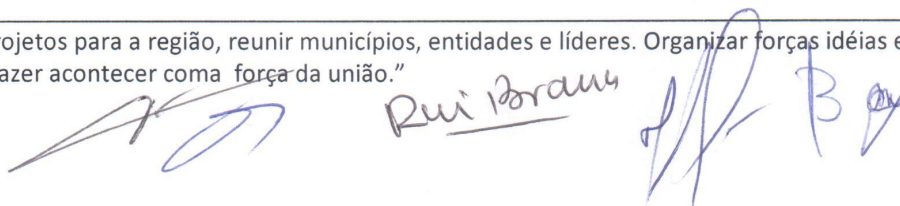 rojetos para a região, reunir municípios, entidades e líderes. Organizar forças idéias e
azer acontecer coma força da união.”
Rui Braun